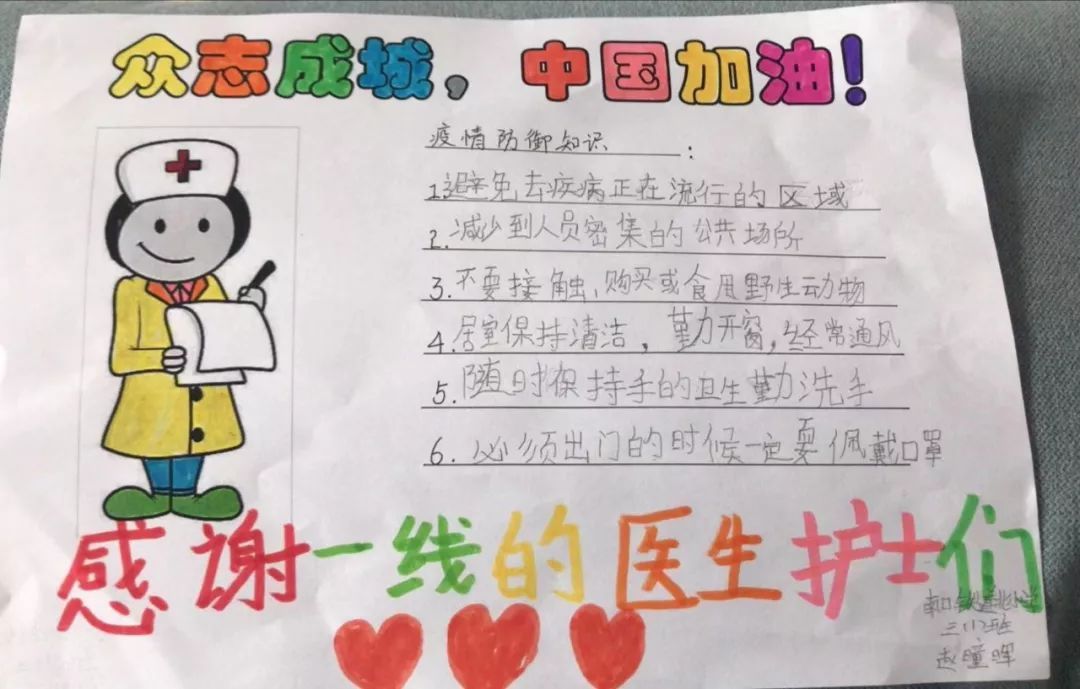 众志成城，中国加油！
疫情防御知识：
1.避免去疾病正在流行的区域
2.减少到人员密集的公共场所
3.不要接触、购买或食用野生动物
4.居室保持清洁，勤开窗，经常通风
5.随时保持手的卫生勤洗手
6.必须出门的时候一定要佩戴口罩
感谢一线的医生护士们
南口铁道北小学
三(1)班
赵瞳晖